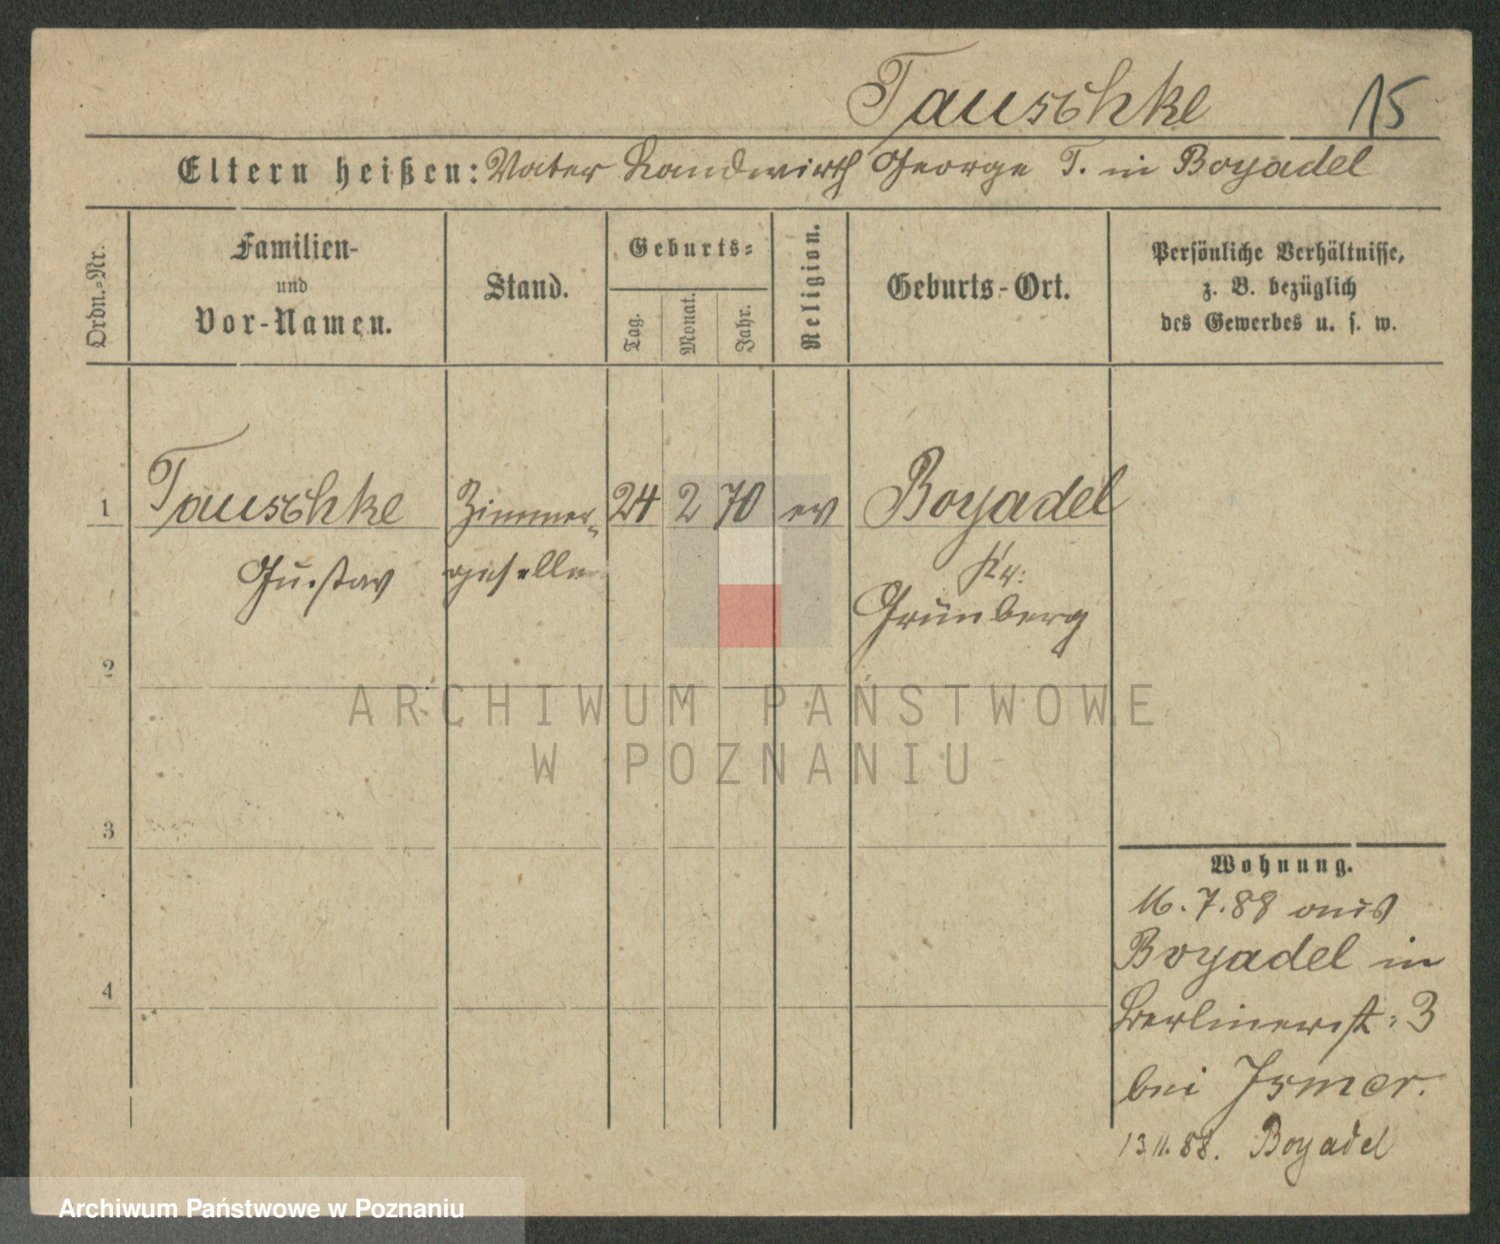 Tauschke 15
Eltern heißen: Vater Landwirth George T. in Boyadel
Ordn.-Nr.
Familien-
und
Vor-Namen.
Stand.
Geburts-
Tag.
Monat.
Jahr.
Religion.
Geburts-Ort.
Persönliche Verhältnisse,
z. B. bezüglich
des Gewerbes u. s. w.
1 Tauschke Zimmer- 24 2 70 ev Boyadel
Gustav geselle Kr:
Grünberg
2
ARCHIWUM PAŃSTWOWE
W POZNANIU
3
Wohnung.
16.7.88 aus
Boyadel in
4
Berlinerst: 3
bei Ismer.
13 11. 88. Boyadel
Archiwum Państwowe w Poznaniu